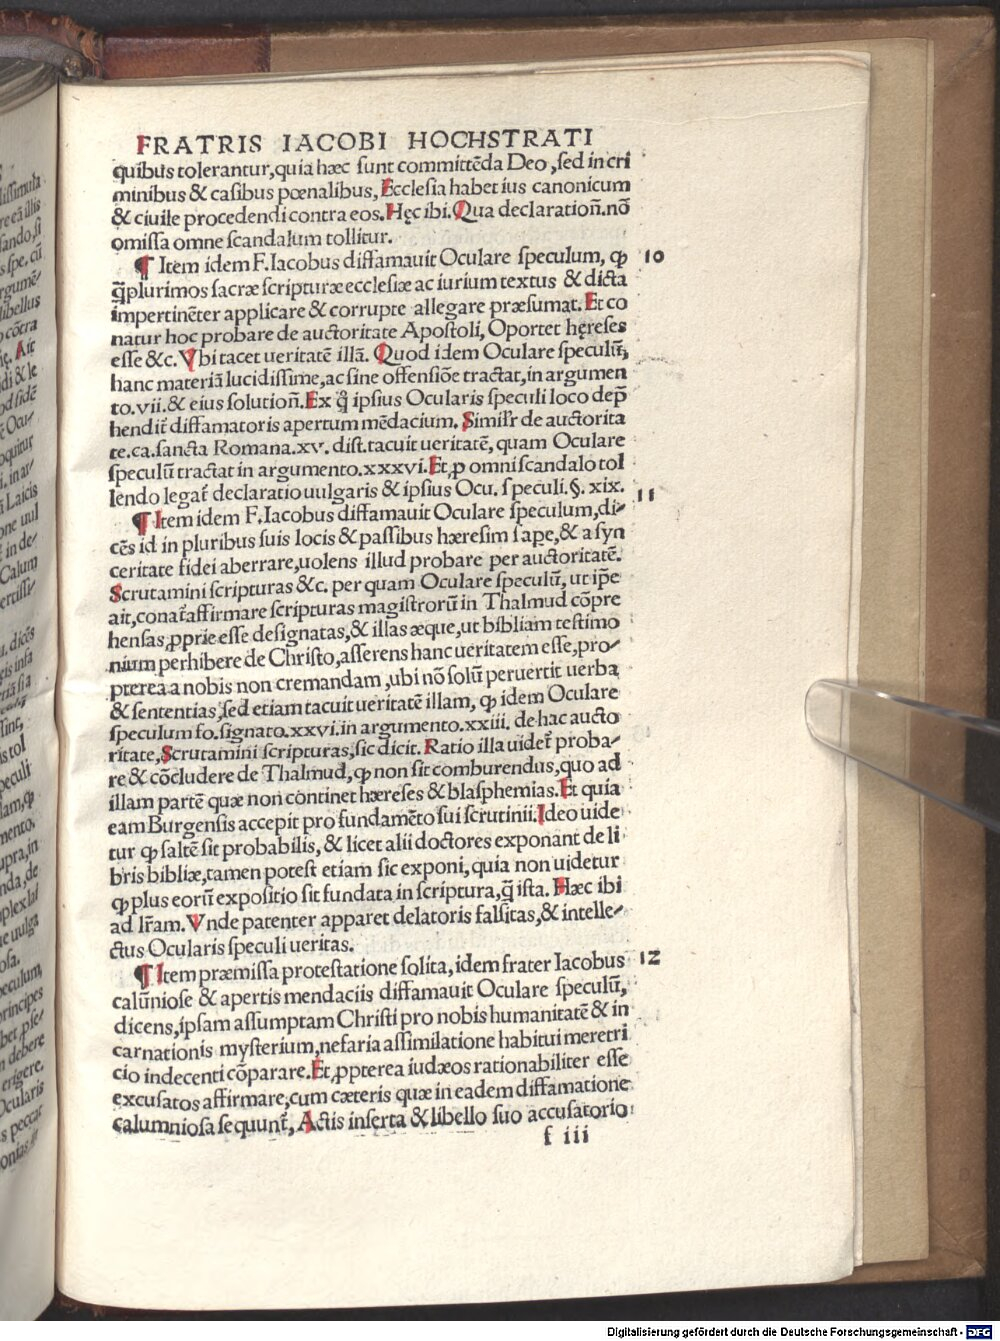 FRATRIS IACOBI HOCHSTRATI
quibus tolerantur, quia hæc sunt committẽda Deo, sed in cri
minibus & casibus pœnalibus, Ecclesia habet ius canonicum
& ciuile procedendi contra eos. Hęc ibi. Qua declaratioñ. nõ
omissa omne scandalum tollitur.
¶ Item idem F. Iacobus diffamauit Oculare speculum, ꝙ 10
q̃plurimos sacræ scripturæ ecclesiæ ac iurium textus & dicta
impertinẽter applicare & corrupte allegare præsumat. Et co
natur hoc probare de auctoritate Apostoli, Oportet hęreses
esse &c. Vbi tacet ueritatẽ illã. Quod idem Oculare speculũ,
hanc materiã lucidissime, ac sine offensiõe tractat, in argumen
to. vii. & eius solutioñ. Ex q̃ ipsius Ocularis speculi loco dep̃
hendit̃ diffamatoris apertum mẽdacium. Simil'r de auctorita
te. ca. sancta Romana. xv. dist. tacuit ueritatẽ, quam Oculare
speculũ tractat in argumento. xxxvi. Et ꝓ omni scandalo tol
lendo legat̃ declaratio uulgaris & ipsius Ocu. speculi. §. xix.
¶ Item idem F. Iacobus diffamauit Oculare speculum, di- 11
cẽs id in pluribus suis locis & passibus hæresim sape, & a syn
ceritate fidei aberrare, uolens illud probare per auctoritatẽ.
Scrutamini scripturas &c. per quam Oculare speculũ, ut ip̃e
ait, conat̃ affirmare scripturas magistrorũ in Thalmud cõpre
hensas, ꝓprie esse designatas, & illas æque, ut bibliam testimo
nium perhibere de Christo, asserens hanc ueritatem esse, pro-
pterea a nobis non cremandam, ubi nõ solũ peruertit uerba
& sententias, sed etiam tacuit ueritatẽ illam, ꝙ idem Oculare
speculum fo. signato. xxvi. in argumento. xxiii. de hac aucto
ritate, Scrutamini scripturas, sic dicit. Ratio illa uidet̃ proba-
re & cõcludere de Thalmud, ꝙ non sit comburendus, quo ad
illam partẽ quæ non continet hæreses & blasphemias. Et quia
eam Burgensis accepit pro fundamẽto sui scrutinii. Ideo uide
tur ꝙ saltẽ sit probabilis, & licet alii doctores exponant de li
bris bibliæ, tamen potest etiam sic exponi, quia non uidetur
ꝙ plus eorũ expositio sit fundata in scriptura, q̃ ista. Hæc ibi
ad lr̃am. Vnde patenter apparet delatoris falsitas, & intelle-
ctus Ocularis speculi ueritas.
¶ Item præmissa protestatione solita, idem frater Iacobus 12
calũniose & apertis mendaciis diffamauit Oculare speculũ,
dicens, ipsam assumptam Christi pro nobis humanitatẽ & in
carnationis mysterium, nefaria assimilatione habitui meretri
cio indecenti cõparare. Et ꝓpterea iudæos rationabiliter esse
excusatos affirmare, cum cæteris quæ in eadem diffamatione
calumniosa sequunt̃, Actis inserta & libello suo accusatorio
f iii
Digitalisierung gefördert durch die Deutsche Forschungsgemeinschaft - DFG